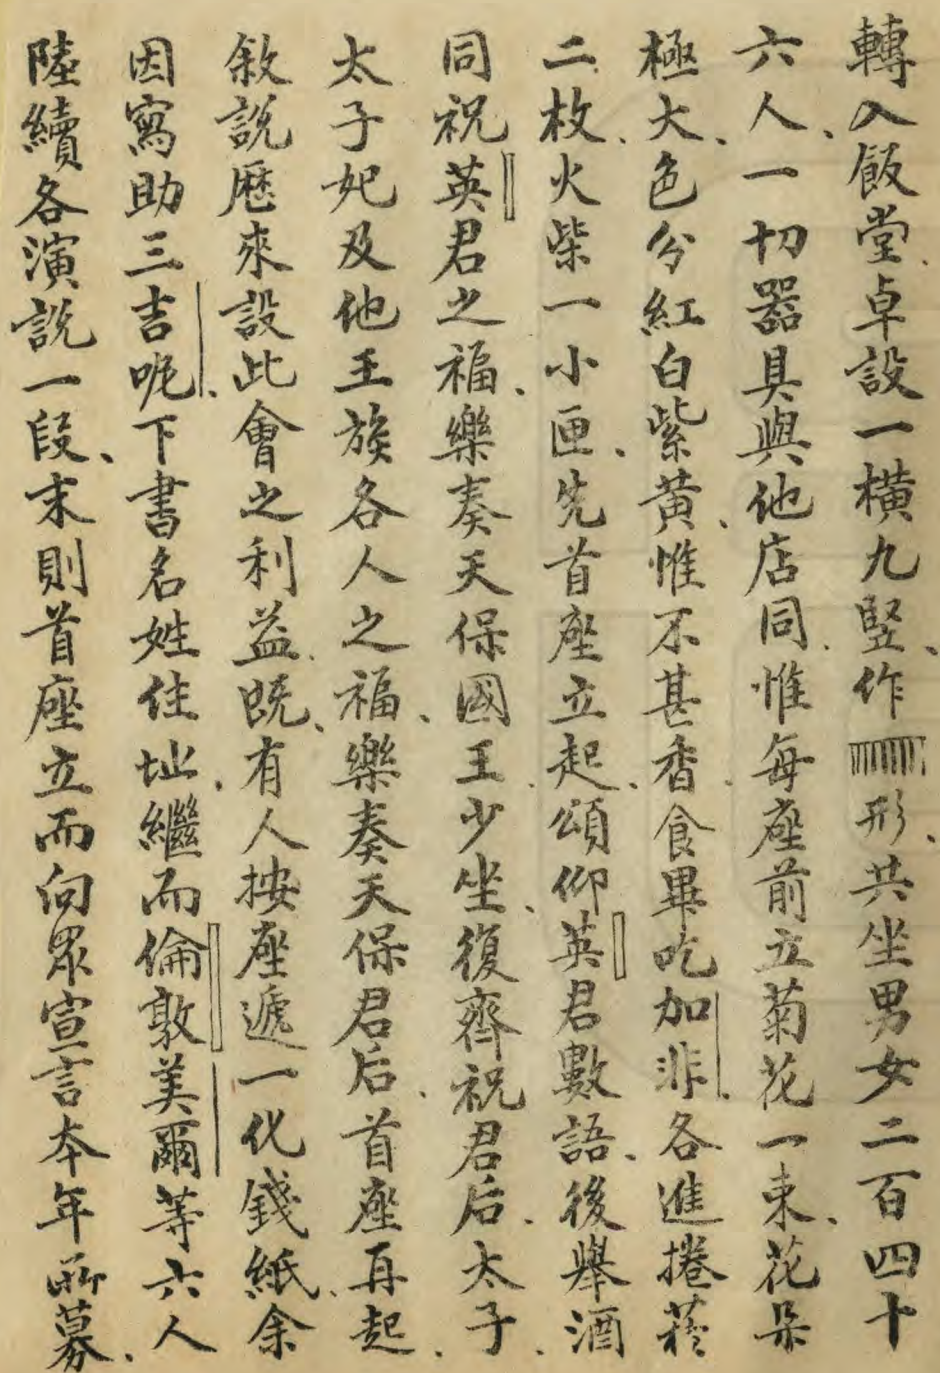 轉入飯堂、卓設一橫九竪、作形、共坐男女二百四十
六人、一切器具與他店同、惟每座前立菊花一束、花朵
極大、色分紅白紫黃、惟不甚香、食畢吃加非、各進捲菸
二枚、火柴一小匣、先首座立起、頌仰英君數語、後舉酒
同祝英君之福、樂奏天保國王、少坐、復齊祝君后、太子、
太子妃及他王族各人之福、樂奏天保君后、首座再起、
敘說歷來設此會之利益、既、有人按座遞一化錢紙、余
因寫助三吉呢、下書名姓住址、繼而倫敦美爾等六人
陸續各演說一段、末則首座立而向眾宣言本年所募、